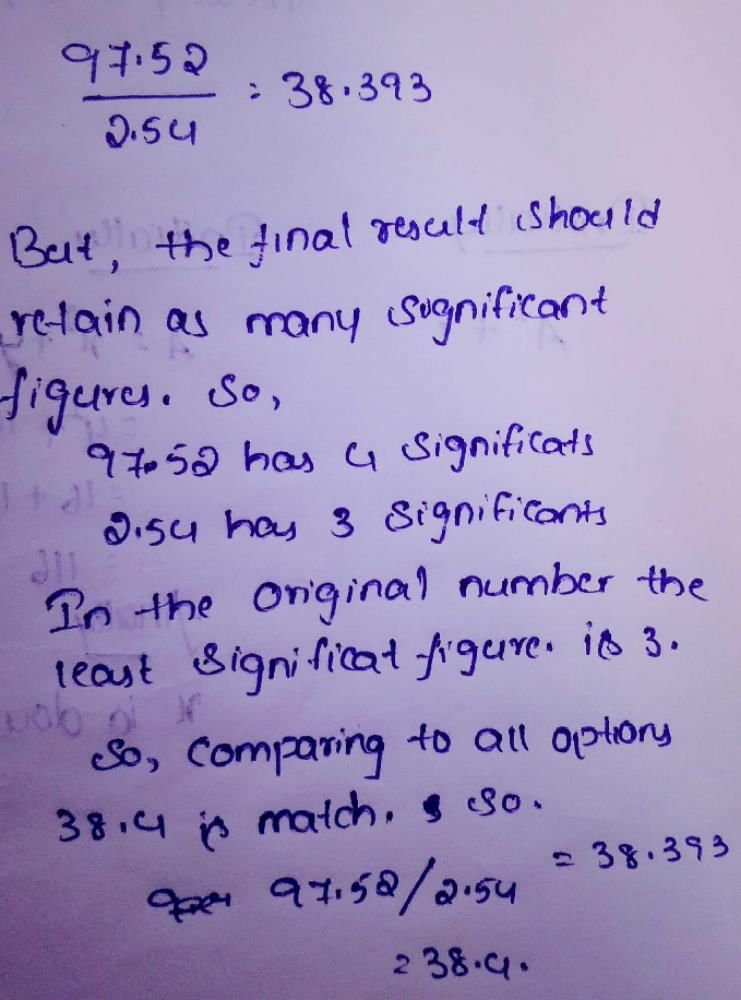 97.52
: 38.393
2.54
But, the final result should
retain as many significant
figures. So,
97.52 has 4 significats
2.54 has 3 significants
In the original number the
least significat figure. is 3.
So, comparing to all options
38.4 is match. So.
97.52/2.54 = 38.393
= 38.4.